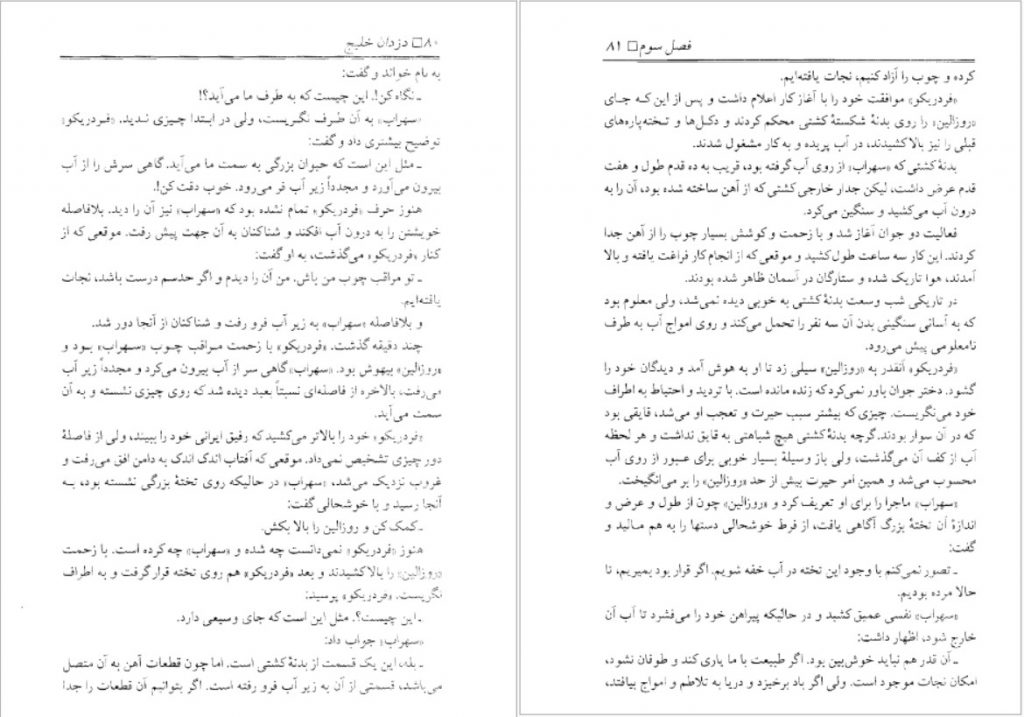 ۸۰ □ دزدان خلیج
به نام خواند و گفت:
ـ نگاه کن!. این چیست که به طرف ما می‌آید؟!
«سهراب» به آن طرف نگریست، ولی در ابتدا چیزی ندید. «فردریکو»
توضیح بیشتری داد و گفت:
ـ مثل این است که حیوان بزرگی به سمت ما می‌آید. گاهی سرش را از آب
بیرون می‌آورد و مجدداً زیر آب فر می‌رود. خوب دقت کن!.
هنوز حرف «فردریکو» تمام نشده بود که «سهراب» نیز آن را دید. بلافاصله
خویشتن را به درون آب افکند و شناکنان به آن جهت پیش رفت. موقعی که از
کنار «فردریکو» می‌گذشت، به او گفت:
ـ تو مراقب چوب من باش. من آن را دیدم و اگر حدسم درست باشد، نجات
یافته‌ایم.
و بلافاصله «سهراب» به زیر آب فرو رفت و شناکنان از آنجا دور شد.
چند دقیقه گذشت. «فردریکو» با زحمت مراقب چوب «سهراب» بود و
«روزالین» بیهوش بود. «سهراب» گاهی سر از آب بیرون می‌کرد و مجدداً زیر آب
می‌رفت، بالاخره از فاصله‌ای نسبتاً بعید دیده شد که روی چیزی نشسته و به آن
سمت می‌آید.
«فردریکو» خود را بالاتر می‌کشید که رفیق ایرانی خود را ببیند، ولی از فاصلهٔ
دور چیزی تشخیص نمی‌داد. موقعی که آفتاب اندک اندک به دامن افق می‌رفت و
غروب نزدیک می‌شد، «سهراب» در حالیکه روی تختهٔ بزرگی نشسته بود، به
آنجا رسید و با خوشحالی گفت:
ـ کمک کن و روزالین را بالا بکش.
هنوز «فردریکو» نمی‌دانست چه شده و «سهراب» چه کرده است. با زحمت
«روزالین» را بالا کشیدند و بعد «فردریکو» هم روی تخته قرار گرفت و به اطراف
نگریست. «فردریکو» پرسید:
ـ این چیست؟. مثل این است که جای وسیعی دارد.
«سهراب» جواب داد:
ـ بله، این یک قسمت از بدنهٔ کشتی است. اما چون قطعات آهن به آن متصل
می‌باشد، قسمتی از آن به زیر آب فرو رفته است. اگر بتوانیم آن قطعات را جدا
فصل سوم □ ۸۱
کرده و چوب را آزاد کنیم، نجات یافته‌ایم.
«فردریکو» موافقت خود را با آغاز کار اعلام داشت و پس از این که جای
«روزالین» را روی بدنهٔ شکستهٔ کشتی محکم کردند و دکل‌ها و تخته‌پاره‌های
قبلی را نیز بالا کشیدند، در آب پریده و به کار مشغول شدند.
بدنهٔ کشتی که «سهراب» از روی آب گرفته بود، قریب به ده قدم طول و هفت
قدم عرض داشت، لیکن جدار خارجی کشتی که از آهن ساخته شده بود، آن را به
درون آب می‌کشید و سنگین می‌کرد.
فعالیت دو جوان آغاز شد و با زحمت و کوشش بسیار چوب را از آهن جدا
کردند. این کار سه ساعت طول کشید و موقعی که از انجام کار فراغت یافته و بالا
آمدند، هوا تاریک شده و ستارگان در آسمان ظاهر شده بودند.
در تاریکی شب وسعت بدنهٔ کشتی به خوبی دیده نمی‌شد، ولی معلوم بود
که به آسانی سنگینی بدن آن سه نفر را تحمل می‌کند و روی امواج آب به طرف
نامعلومی پیش می‌رود.
«فردریکو» آنقدر به «روزالین» سیلی زد تا او به هوش آمد و دیدگان خود را
گشود. دختر جوان باور نمی‌کرد که زنده مانده است. با تردید و احتیاط به اطراف
خود می‌نگریست. چیزی که بیشتر سبب حیرت و تعجب او می‌شد، قایقی بود
که در آن سوار بودند. گرچه بدنهٔ کشتی هیچ شباهتی به قایق نداشت و هر لحظه
آب از کف آن می‌گذشت، ولی باز وسیلهٔ بسیار خوبی برای عبور از روی آب
محسوب می‌شد و همین امر حیرت پیش از حد «روزالین» را بر می‌انگیخت.
«سهراب» ماجرا را برای او تعریف کرد و «روزالین» چون از طول و عرض و
اندازهٔ آن تختهٔ بزرگ آگاهی یافت، از فرط خوشحالی دستها را به هم مالید و
گفت:
ـ تصور نمی‌کنم با وجود این تخته در آب خفه شویم. اگر قرار بود بمیریم، تا
حالا مرده بودیم.
«سهراب» نفسی عمیق کشید و در حالیکه پیراهن خود را می‌فشرد تا آب آن
خارج شود، اظهار داشت:
ـ آن قدر هم نباید خوش‌بین بود. اگر طبیعت با ما یاری کند و طوفان نشود،
امکان نجات موجود است. ولی اگر باد برخیزد و دریا به تلاطم و امواج بیافتد،